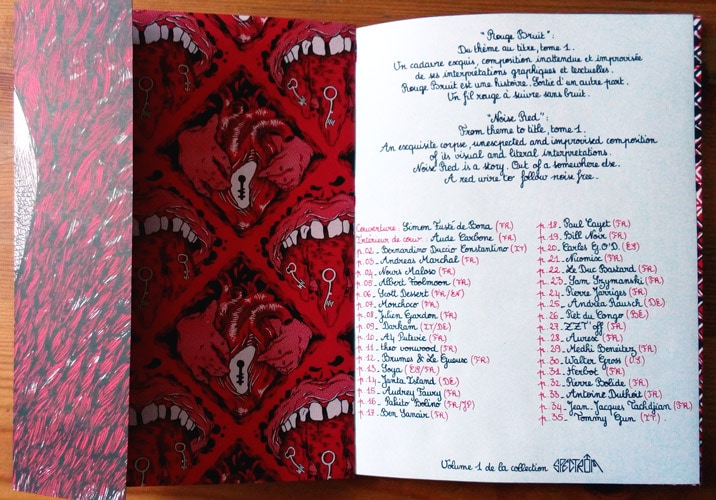 "Rouge Bruit":
Du thème au titre, tome 1.
Un cadavre exquis, composition inattendue et improvisée
de ses interprétations graphiques et textuelles.
Rouge Bruit est une histoire. Sortie d'un autre part.
Un fil rouge à suivre sans bruit.
"Noise Red":
From theme to title, tome 1.
An exquisite corpse, unexpected and improvised composition
of its visual and literal interpretations.
Noise Red is a story. Out of a somewhere else.
A red wire to follow noise free.
Couverture: Simon Fusté de Bona (FR)
Intérieur de couv: Aude Carbone (FR)
p. 02_ Bernardino Duccio Constantino (IT)
p. 03_ Andreas Marchal (FR)
p. 04_ Nours Maloso (FR)
p. 05_ Albert Foolmoon (FR)
p. 06_ Scott Dessert (FR/EN)
p. 07_ Monchoco (FR)
p. 08_ Julien Gardon (FR)
p. 09_ Darkam (IT/DE)
p. 10_ Aty Puterie (FR)
p. 11_ theo vonwood (FR)
p. 12_ Brumes & Le Gueux (FR)
p. 13_ Soya (ES/FR)
p. 14_ Janta Island (DE)
p. 15_ Audrey Faury (FR)
p. 16_ Pakito Bolino (FR/JP)
p. 17_ Ben Sanair (FR)
p. 18_ Paul Cayet (FR)
p. 19_ Bill Noir (FR)
p. 20_ Carles G.O'D. (ES)
p. 21_ Nicomix (FR)
p. 22_ Le Duc Bastard (FR)
p. 23_ Sam Szymanski (FR)
p. 24_ Pierre Jarriges (FR)
p. 25_ Andrea Rausch (DE)
p. 26_ Piet du Congo (BE)
p. 27_ ZZT'off (FR)
p. 28_ Auresc (FR)
p. 29_ Medhi Beneitez (FR)
p. 30_ Walter Gross (US)
p. 31_ Herbot (FR)
p. 32_ Pierre Bolide (FR)
p. 33_ Antoine Duthoit (FR)
p. 34_ Jean Jacques Tachdjian (FR)
p. 35_ Tommy Gun (IT).
Volume 1 de la collection SPECTRÜM